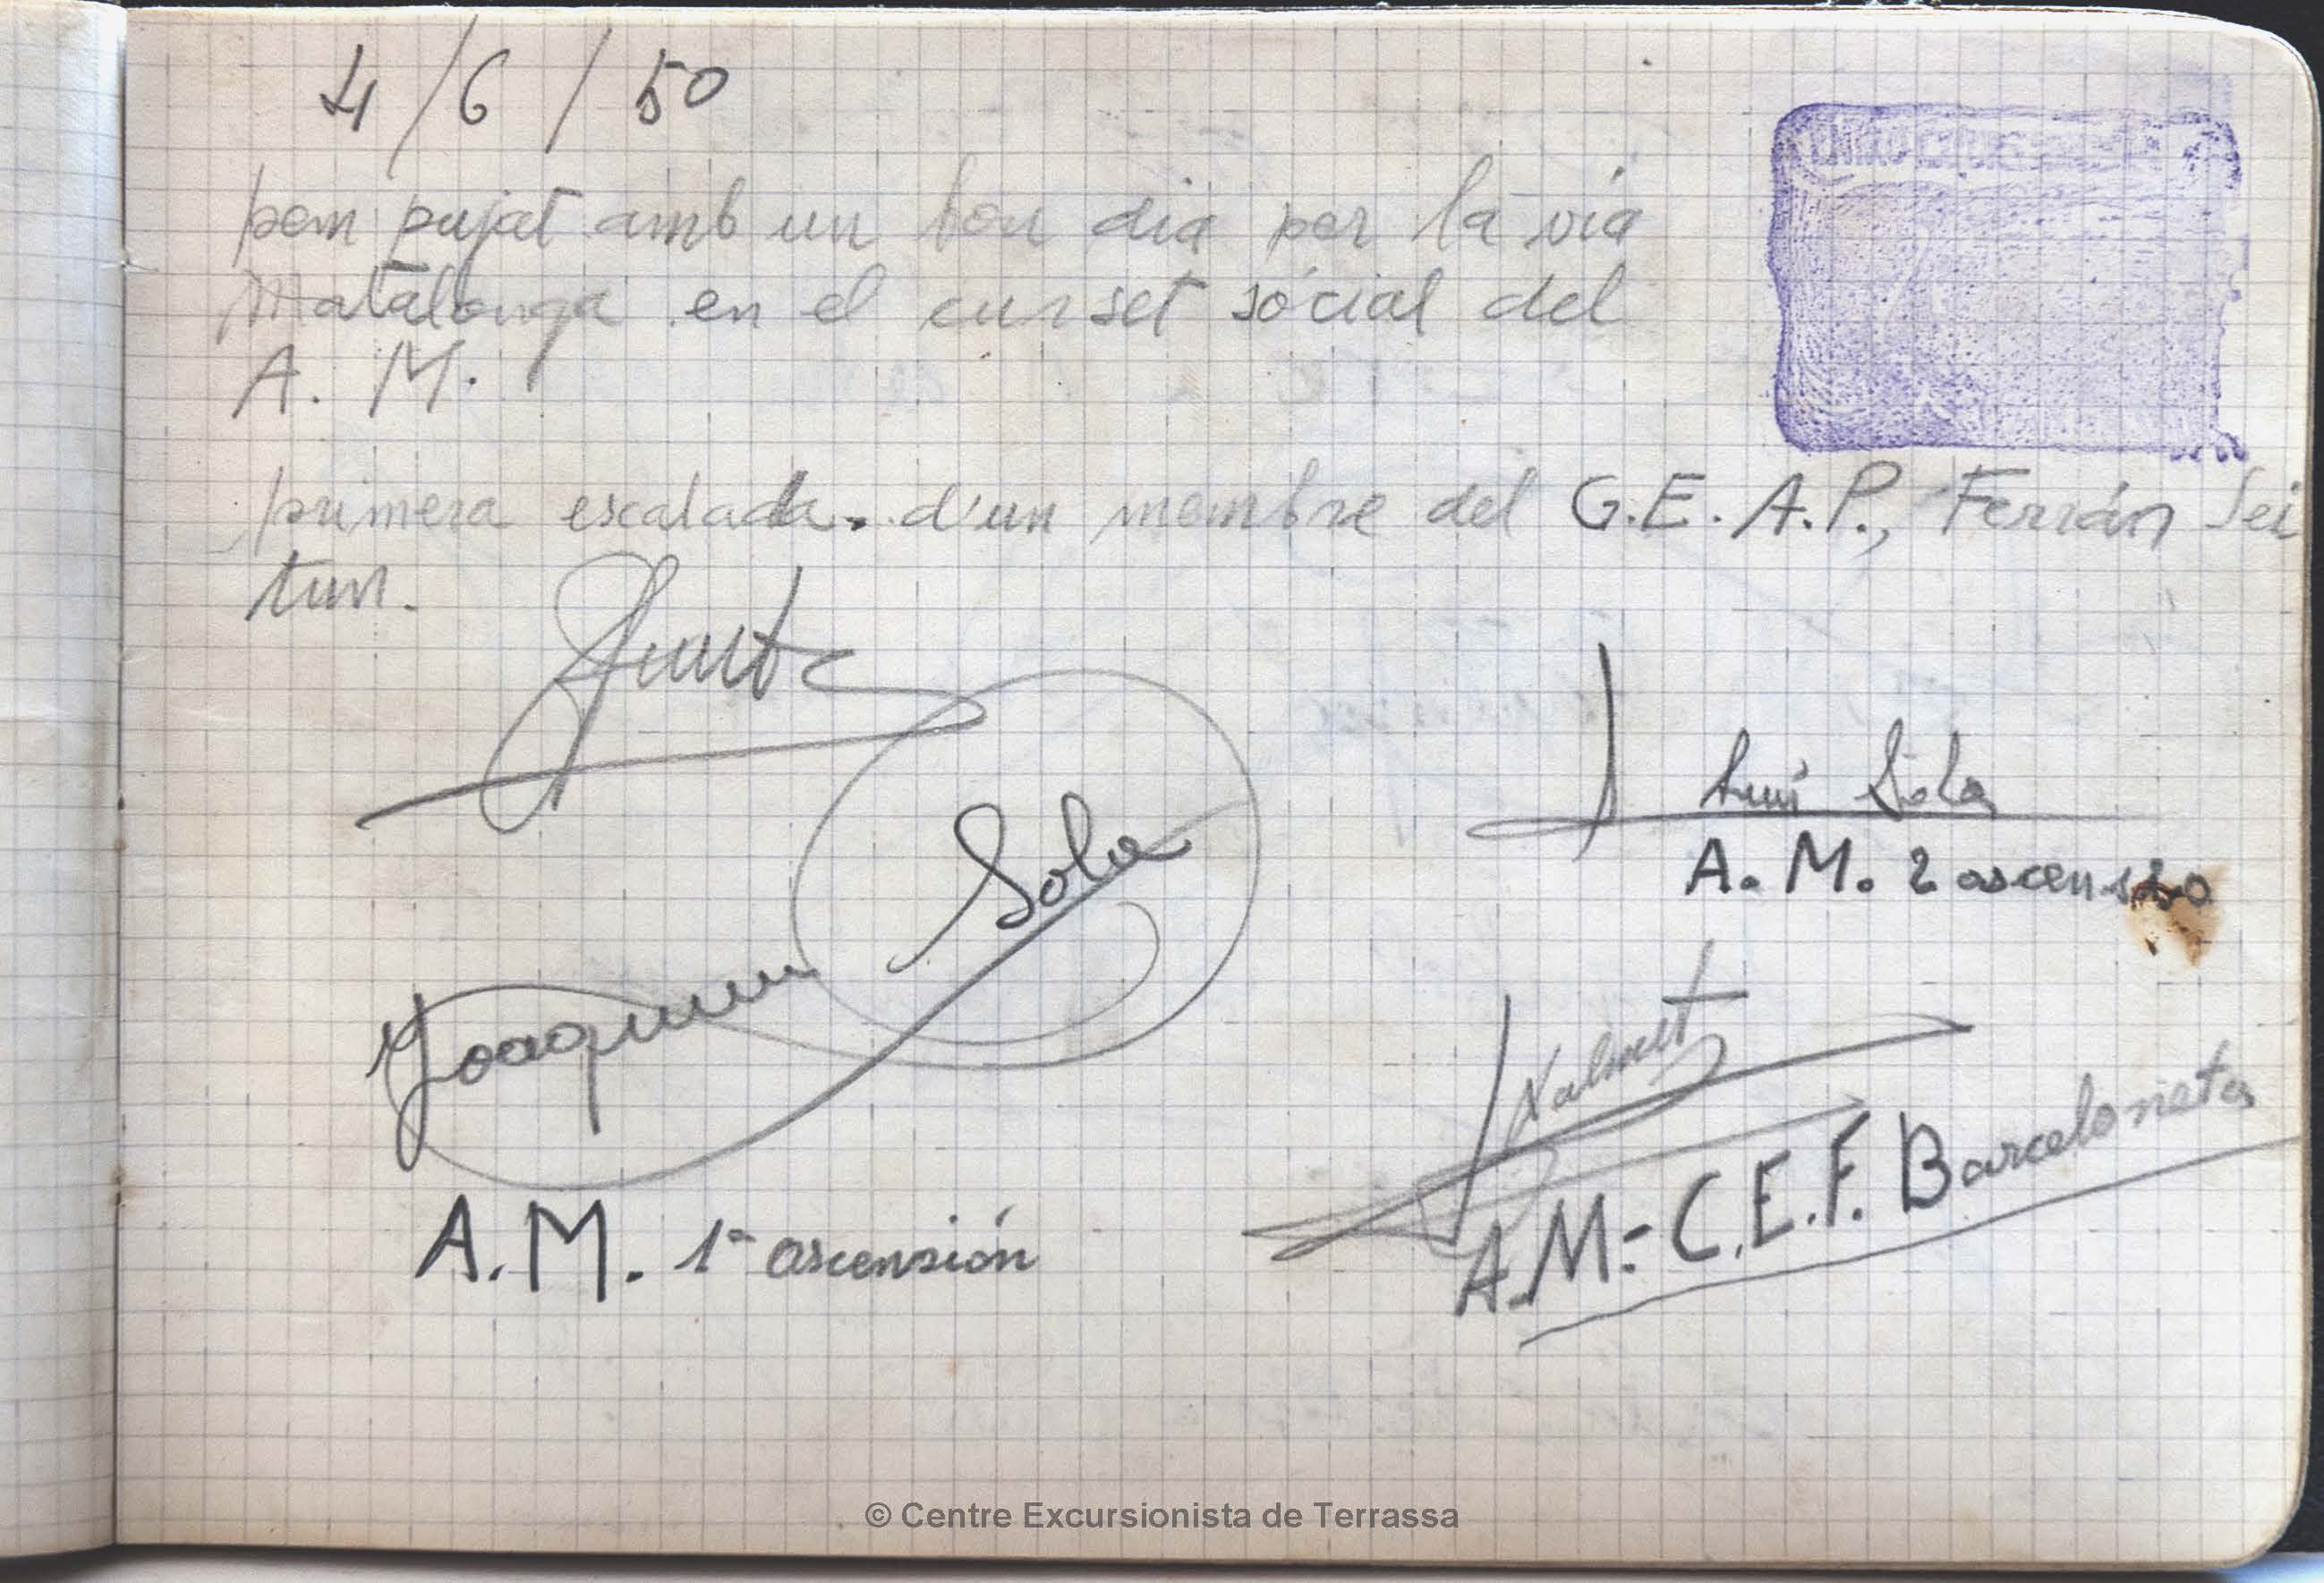 4/6/50
hem pujat amb un bon dia per la via
Matalonga en el curset social del
A. M.
primera escalada. d'un membre del G.E.A.P., Ferrán Sei
tun.
Luis Sola
A. M. 2 ascensió
Joaquim Sola
A.M. 1ª ascensión
A.M.= C.E.F. Barceloneta
© Centre Excursionista de Terrassa